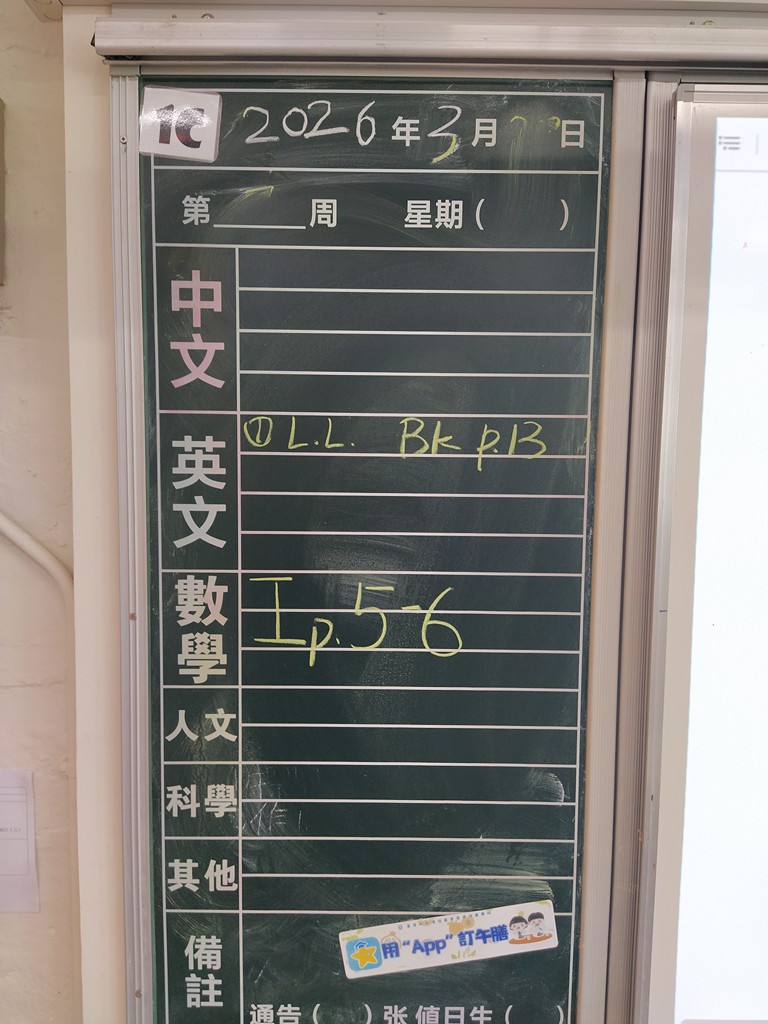 1C 2026年3月 日
第 周 星期( )
中文
英文 ① L.L. Bk p.13
數學 I p.5-6
人文
科學
其他
備註
用“App”訂午膳
通告( )张 值日生( )